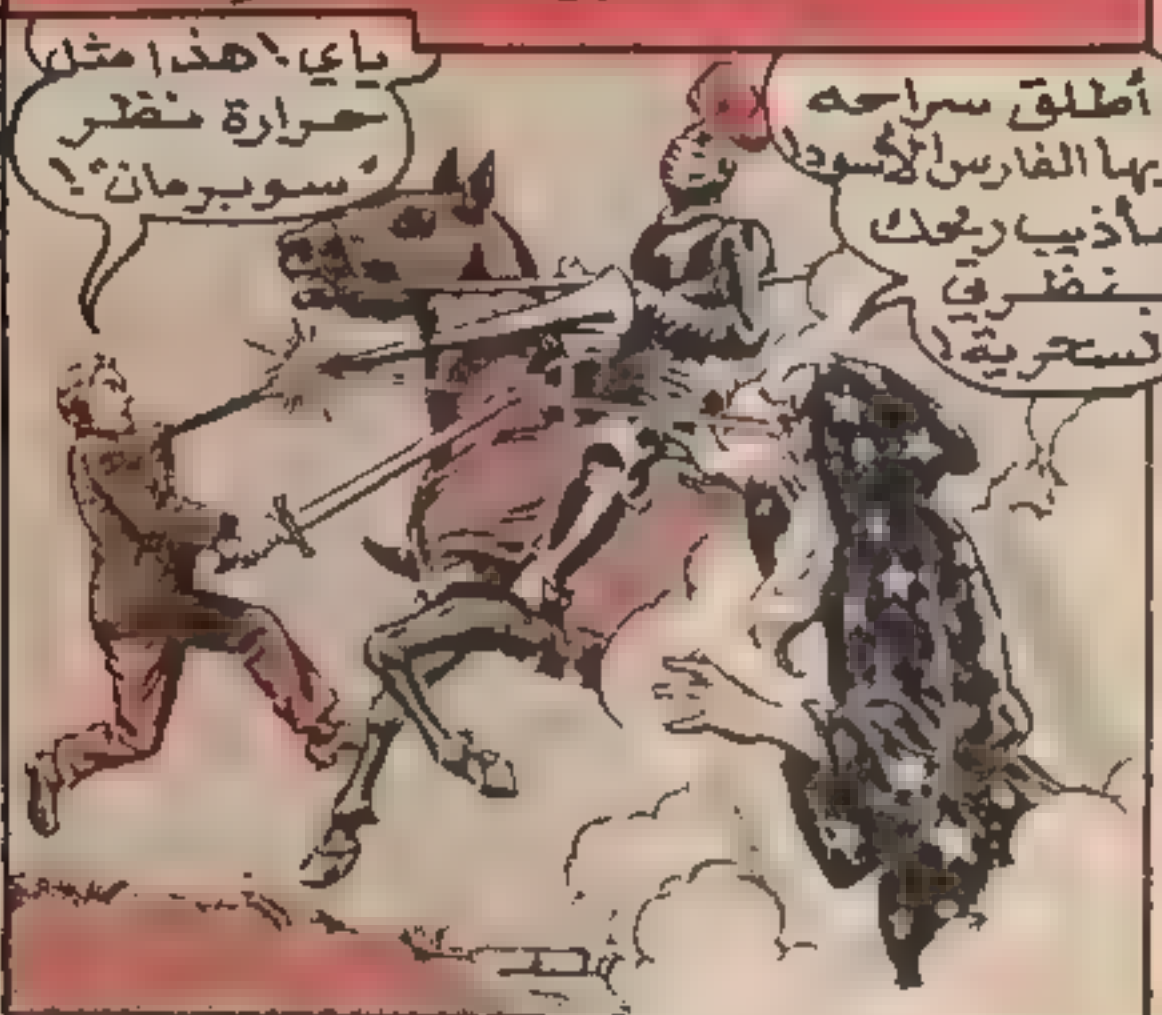 أطلق سراحه
أيها الفارس الأسود!
سأذيب رمحك
السحرية!
ياي! هذا مثل
حرارة نظر
"سوبرمان"!